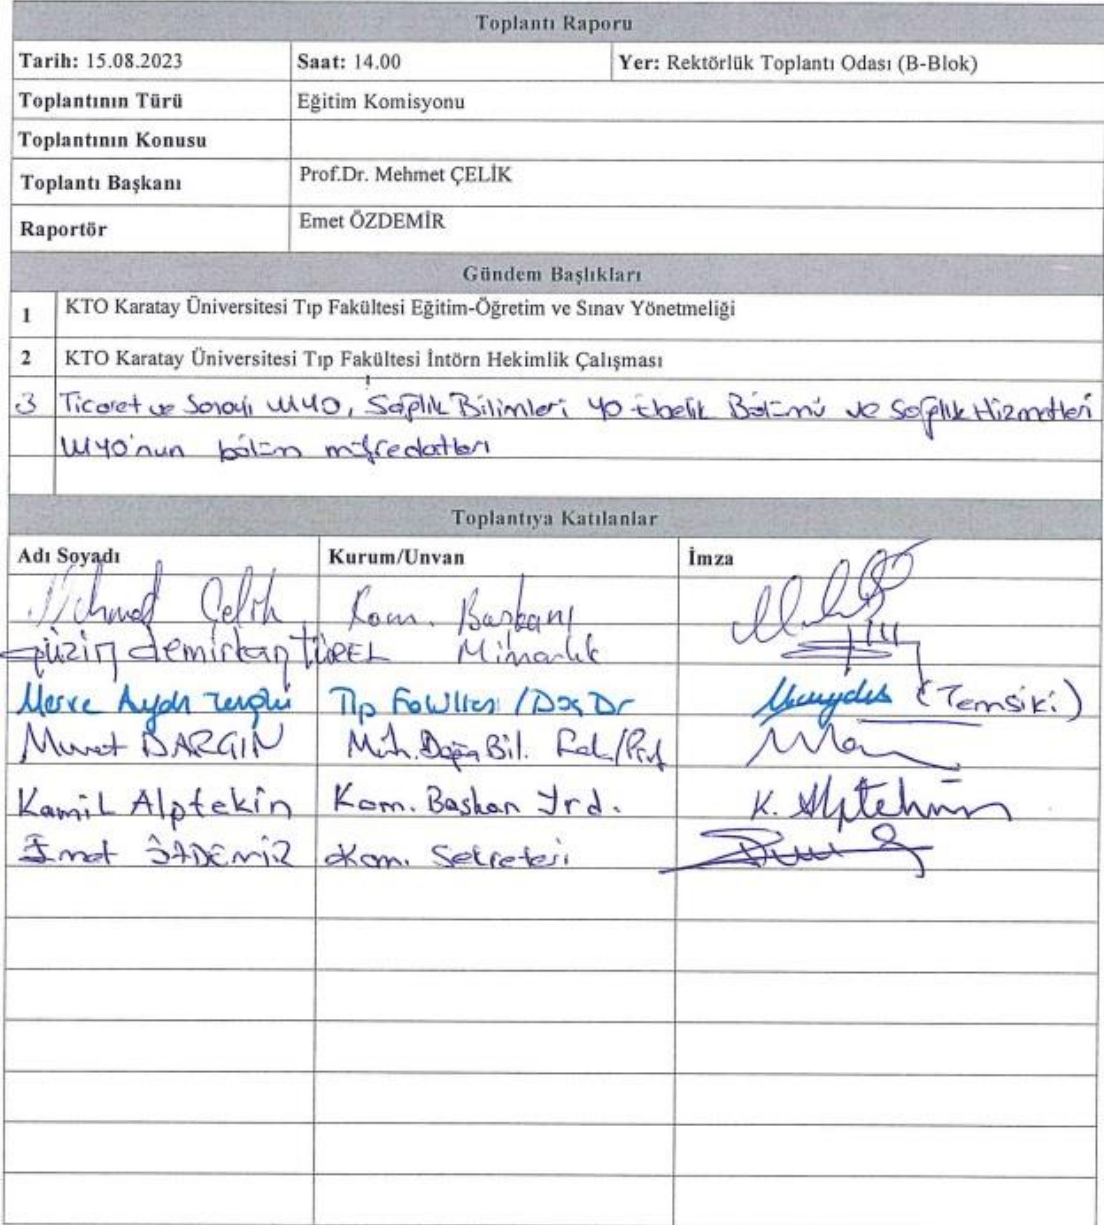 Toplantı Raporu
Tarih: 15.08.2023 Saat: 14.00 Yer: Rektörlük Toplantı Odası (B-Blok)
Toplantının Türü Eğitim Komisyonu
Toplantının Konusu
Toplantı Başkanı Prof.Dr. Mehmet ÇELİK
Raportör Emet ÖZDEMİR
Gündem Başlıkları
1 KTO Karatay Üniversitesi Tıp Fakültesi Eğitim-Öğretim ve Sınav Yönetmeliği
2 KTO Karatay Üniversitesi Tıp Fakültesi İntörn Hekimlik Çalışması
3 Ticaret ve Sanayi MYO, Sağlık Bilimleri YO Ebelik Bölümü ve Sağlık Hizmetleri
MYO'nun bölüm müfredatları
Toplantıya Katılanlar
Adı Soyadı Kurum/Unvan İmza
Mehmet Çelik Kom. Başkanı
güzin demirkan TÜREL Mimarlık
Merve Aydın Tıp Fakültesi / Doç Dr (Temsili)
Murat DARGIN Müh. Doğa Bil. Fak/Prof
Kamil Alptekin Kom. Başkan Yrd. K. Alptekin
Emet ÖZDEMİR Kom. Sekreteri